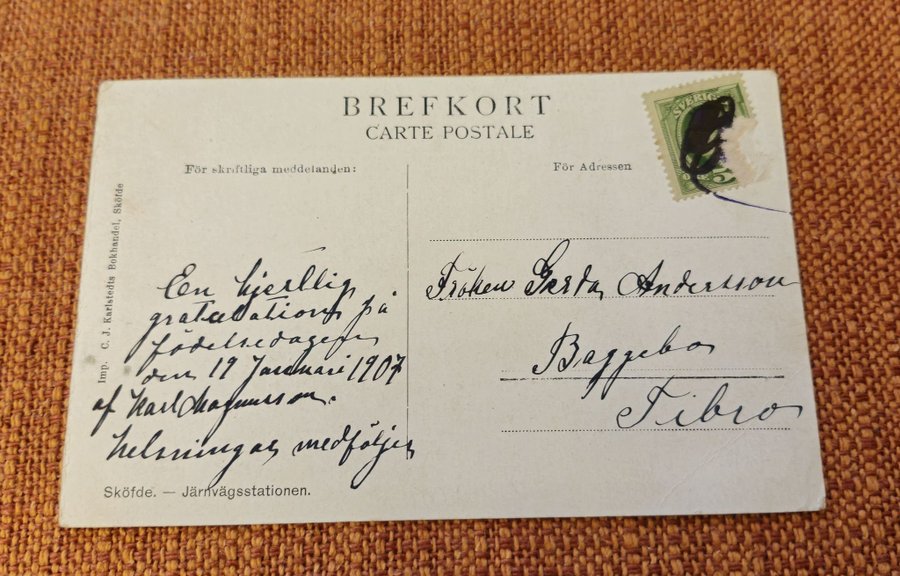 BREFKORT
CARTE POSTALE
För skriftliga meddelanden:
För Adressen
SVERIGE
5
Imp. C. J. Karlstedts Bokhandel, Sköfde
En hjertlig
gratulation på
födelsedagen
den 19 Januari 1907
af Karl Magnusson.
helsningar medföljer
Fröken Gerda Andersson
Baggebo
Tibro
Sköfde. — Järnvägsstationen.